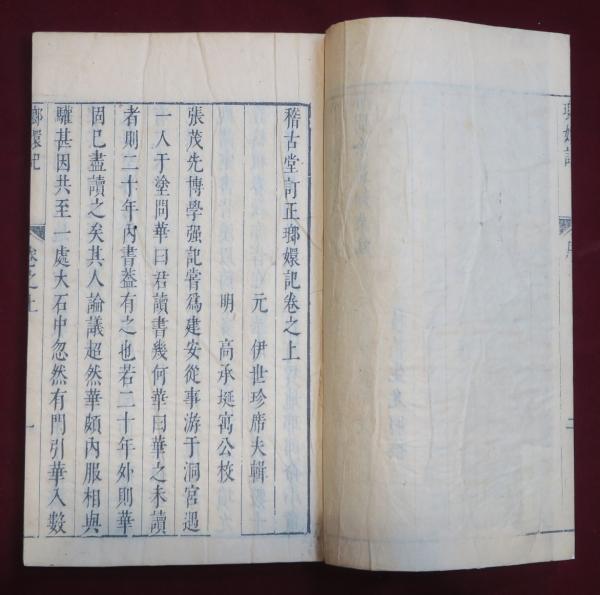 稽古堂訂正瑯嬛記卷之上
元　伊世珍席夫輯
明　高承埏寓公校
張茂先博學强記嘗爲建安從事游于洞宮遇
一人于塗問華曰君讀書幾何華曰華之未讀
者則二十年內書葢有之也若二十年外則華
固已盡讀之矣其人論議超然華頗內服相與
驩甚因共至一處大石中忽然有門引華入數
瑯嬛記
卷之上
一